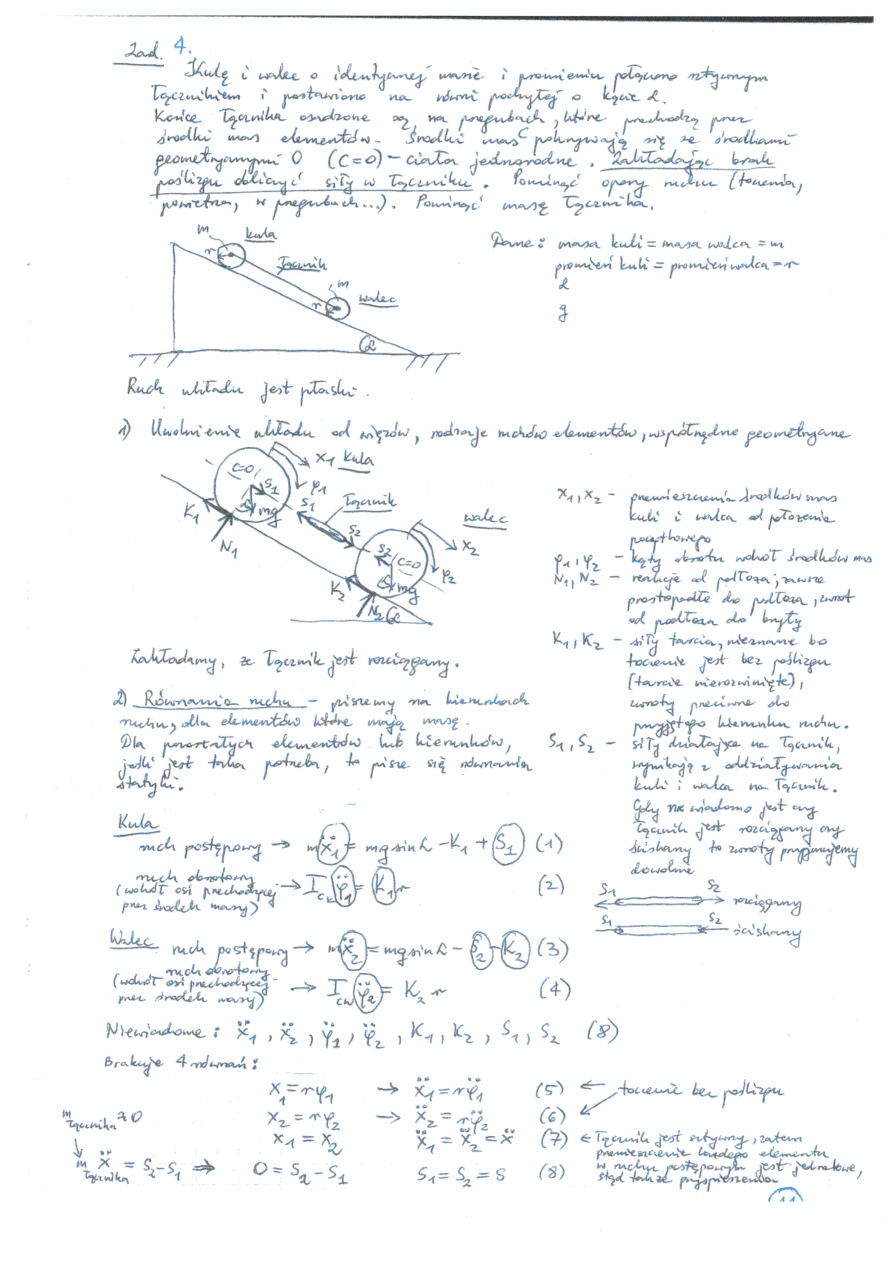 Zad. 4.
Kulę i walec o identycznej masie i promieniu połączono sztywnym
łącznikiem i postawiono na równi pochyłej o kącie α.
Końce łącznika osadzone są na przegubach, które przechodzą przez
środki mas elementów. Środki mas C pokrywają się ze środkami
geometrycznymi O (C=O) - ciała jednorodne. Zakładając brak
poślizgu obliczyć siły w łączniku. Pominąć opory ruchu (toczenia,
powietrza, w przegubach...). Pominąć masę łącznika.
Dane: masa kuli = masa walca = m
promień kuli = promień walca = r
α
g
m kula
r
łącznik
m
walec
r
α
Ruch układu jest płaski.
1) Uwolnienie układu od więzów, rodzaje ruchów elementów, współrzędne geometryczne
C=O
S1
x1 kula
φ1
łącznik
S1
S2
mg
K1
N1
walec
x2
S2
C=O
φ2
K2
mg
N2
α
x1, x2 - przemieszczenia środków mas
kuli i walca od położenia
początkowego
φ1, φ2 - kąty obrotu wokół środków mas
N1, N2 - reakcje od podłoża; zawsze
prostopadłe do podłoża, zwrot
od podłoża do bryły
K1, K2 - siły tarcia, nieznane bo
toczenie jest bez poślizgu
(tarcie nierozwinięte),
zwroty przeciwne do
przyjętego kierunku ruchu.
S1, S2 - siły działające na łącznik,
wynikają z oddziaływania
kuli i walca na łącznik.
Gdy nie wiadomo jest czy
łącznik jest rozciągany czy
ściskany to zwroty przyjmujemy
dowolnie
S1 S2 rozciągany
S1 S2 ściskany
Zakładamy, że łącznik jest rozciągany.
2) Równania ruchu - piszemy na kierunkach
ruchu, dla elementów które mają masę.
Dla pozostałych elementów lub kierunków,
jeśli jest taka potrzeba, to pisze się równania
statyki.
Kula
ruch postępowy → mẍ1 = mg sin α - K1 + S1 (1)
ruch obrotowy
(wokół osi przechodzącej
przez środek masy) → I_CK φ̈1 = K1 r (2)
Walec ruch postępowy → mẍ2 = mg sin α - S2 - K2 (3)
ruch obrotowy
(wokół osi przechodzącej
przez środek masy) → I_CW φ̈2 = K2 r (4)
Niewiadome: ẍ1, ẍ2, φ̈1, φ̈2, K1, K2, S1, S2 (8)
Brakuje 4 równań:
x1 = rφ1 → ẍ1 = rφ̈1 (5) ← toczenie bez poślizgu
x2 = rφ2 → ẍ2 = rφ̈2 (6)
x1 = x2 ẍ1 = ẍ2 = ẍ (7) ← łącznik jest sztywny, zatem
przemieszczenie każdego elementu
w ruchu postępowym jest jednakowe,
stąd także przyspieszenia
m łącznika ≈ 0
m łącznika ẍ = S2 - S1 ⇒ 0 = S2 - S1 S1 = S2 = S (8)
11